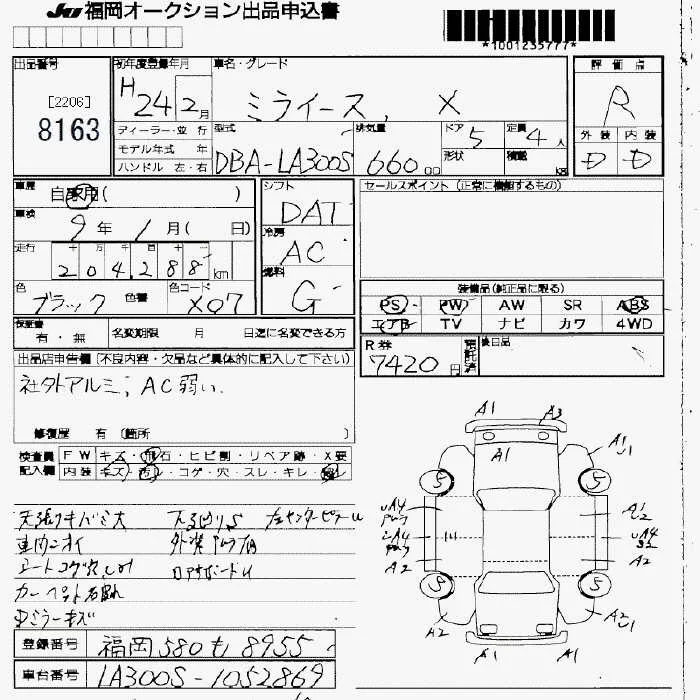 JU 福岡オークション出品申込書
*1001235777*
出品番号
[2206]
8163
初年度登録年月
H 24 2月
車名・グレード
ミライース, X
評価点
R
外装 内装
D D
ディーラー・並行
モデル年式 年
ハンドル 左・右
型式
DBA-LA300S
排気量
660 CC
ドア 5
形状
定員 4人
積載 kg
車歴 自家用( )
車検 9年 1月( 日)
走行 十 万 千 百 十 一
204288 km
色 ブラック 色替
色コード X07
シフト
DAT
冷房
AC
燃料
G
セールスポイント(正常に機能するもの)
装備品(純正品に限る)
PS PW AW SR ABS
エアB TV ナビ カワ 4WD
保証書
有・無
名変期限 月 日迄に名変できる方
R券
7420円
預託済
後日品
出品店申告欄(不良内容・欠品など具体的に記入して下さい)
社外アルミ; AC弱い.
修復歴 有 (箇所 )
検査員 FW キズ・飛石・ヒビ割・リペア跡・X要
記入欄 内装 キズ・汚れ・コゲ・穴・スレ・キレ・
天張りキバミ大 下廻りS
車内ニオイ
シートコゲ穴
カーペット
ミラーキズ
登録番号 福岡 580 も 8955
車台番号 LA300S-1052869
A1 A3
A1
A1
U1
5 5
UA4 A1
U2
UA4
A2 A2
5 5
A2 A2
U1
A1 A1